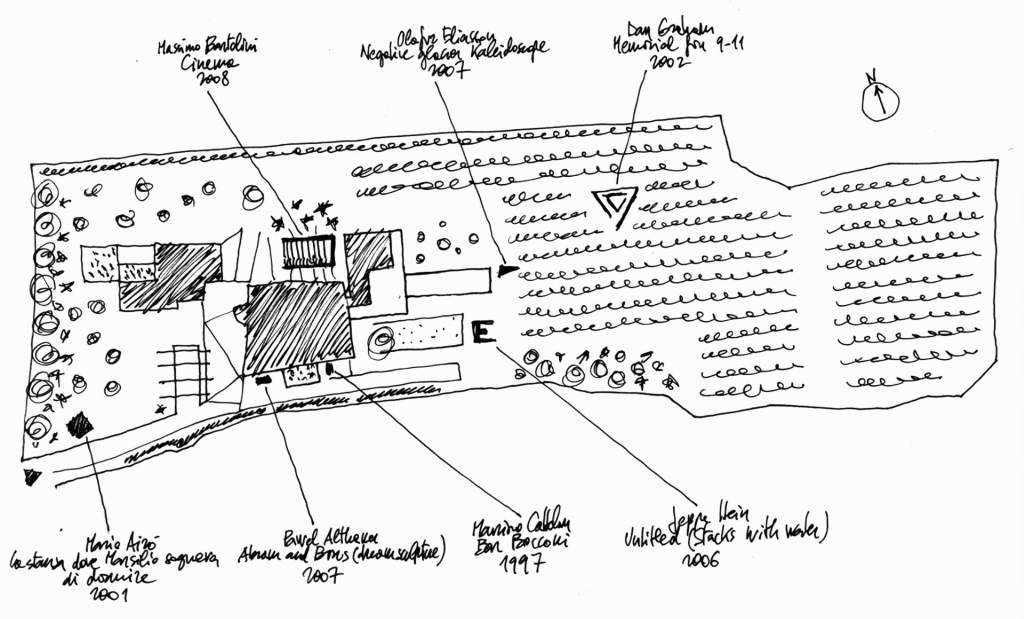 Massimo Bartolini
Cinema
2008
Olafur Eliasson
Negative glacier Kaleidoscope
2007
Dan Graham
Memorial for 9-11
2002
N
E
Mario Airò
La stanza dove Marsilio sognava
di dormire
2001
Pawel Althamer
Abram and Brus (dream sculpture)
2007
Maurizio Cattelan
Bon Bocconi
1997
Jeppe Hein
Untitled (Stacks with water)
2006